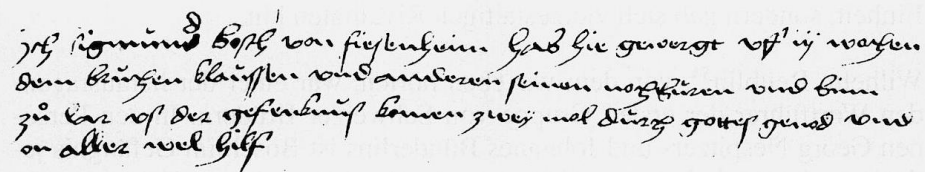 Jch sigmund bosch von fiesenheim hab hie gewergt vff iij wochen
dem bruchen klaussen vnd anderen seinen nochburen vnd binn
zů vs der gefencknus komen zwey mol durch gottes genod vnd
on aller wel hilf